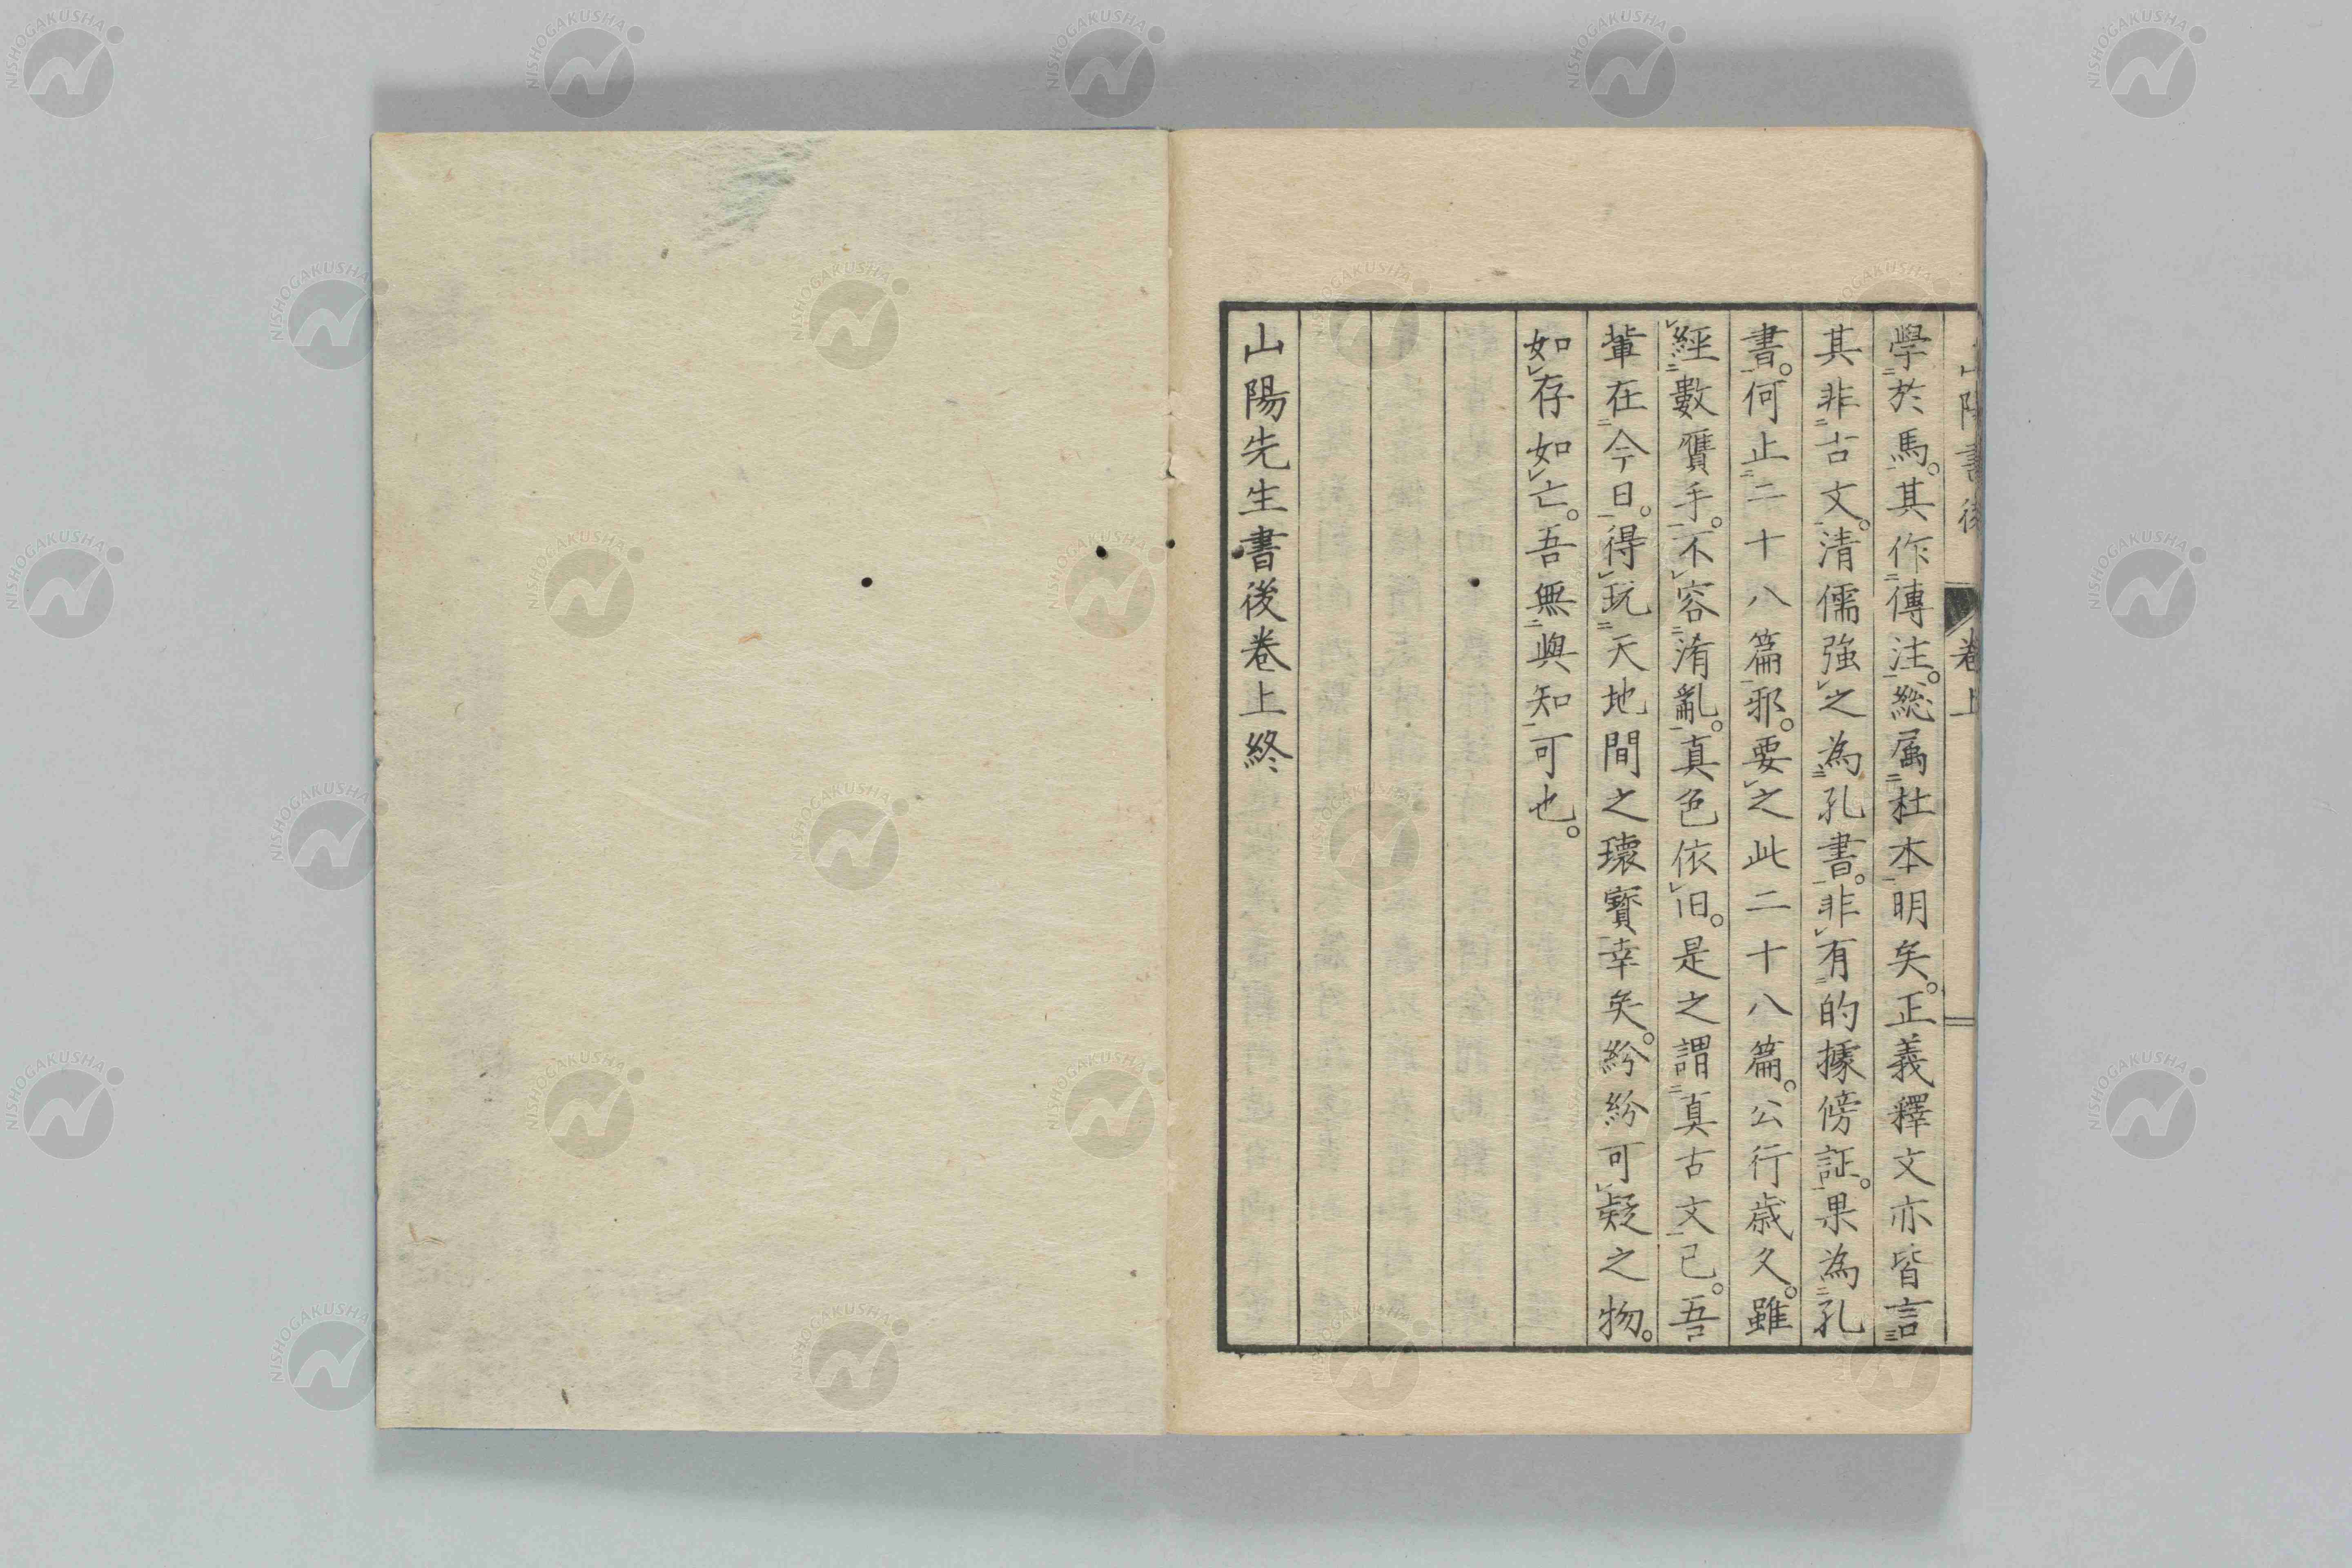 山陽書後 卷上
學於馬。其作傳注。総属杜本明矣。正義釋文亦皆言
其非古文。清儒強之為孔書。非有的據傍証。果為孔
書。何止二十八篇邪。要之此二十八篇。公行歳久。雖
經數贋手。不容淆亂。真色依旧。是之謂真古文已。吾
輩在今日。得玩天地間之瓌寶幸矣。紛紛可疑之物。
如存如亡。吾無與知可也。
山陽先生書後卷上終
NISHOGAKUSHA